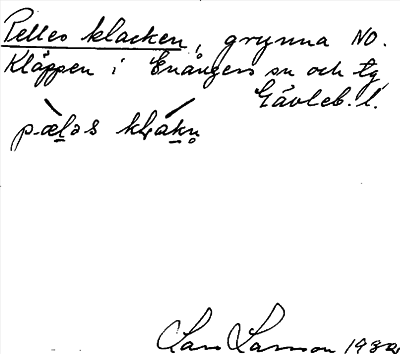 Pelles klacken, grynna NO.
Kläppen i Enångers sn och tg
Gävleb. l.
pæləs klakn̥
Lars Larsson 1982